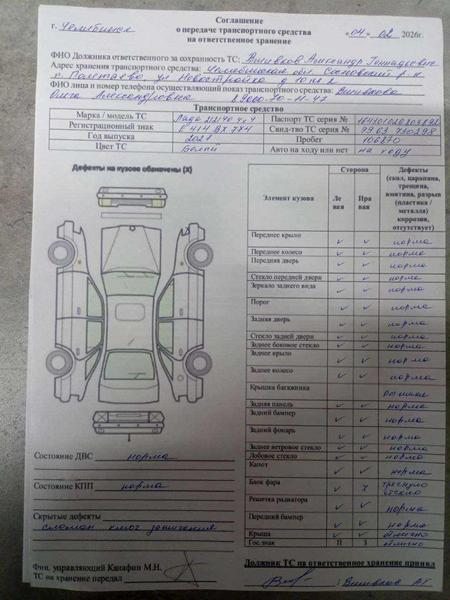 Соглашение
г. Челябинск о передаче транспортного средства «04» 02 2026г.
на ответственное хранение
ФИО Должника ответственного за сохранность ТС: Вишняков Александр Геннадьевич
Адрес хранения транспортного средства: Челябинская обл Сосновский р-н
п. Полетаево, ул Новостройка д
ФИО лица и номер телефона осуществляющий показ транспортного средства: Вишнякова
Ольга Александровна
Транспортное средство
Марка / модель ТС Лада Паспорт ТС серия №
Регистрационный знак Свид-тво ТС серии №
Год выпуска Пробег 106270
Цвет ТС Белый Авто на ходу или нет на ходу
Дефекты на кузове обозначены (X)
Элемент кузова Сторона Ле вая Пра вая Дефекты (скол, царапина, трещина, вмятина, разрыв (пластика / металла) коррозия, отсутствует)
Переднее крыло ✓ ✓ норма
Переднее колесо ✓ ✓ норма
Передняя дверь ✓ ✓ норма
Стекло передней двери ✓ ✓ норма
Зеркало заднего вода ✓ ✓ норма
Порог ✓ ✓ норма
Задняя дверь ✓ ✓ норма
Стекло задней двери ✓ ✓ норма
Заднее боковое стекло ✓ ✓ норма
Заднее крыло ✓ ✓ норма
Заднее колесо ✓ ✓ норма
Крышка багажника
Задняя панель ✓ ✓ норма
Задний бампер ✓ ✓ норма
Задний фонарь ✓ ✓ норма
Заднее ветровое стекло ✓ ✓ норма
Лобовое стекло ✓ ✓ норма
Капот ✓ ✓ норма
Блок фара ✓ стекло
Решетка радиатора ✓ ✓ норма
Передний бампер ✓ ✓ норма
Крыша ✓ ✓ отлично
Гос.знак П З отлично
Состояние ДВС норма
Состояние КПП норма
Скрытые дефекты
сломан ключ зажигания
Фин. управляющий Канафин М.Н.
ТС на хранение передал
Должник ТС на ответственное хранение принял
Вишняков АГ